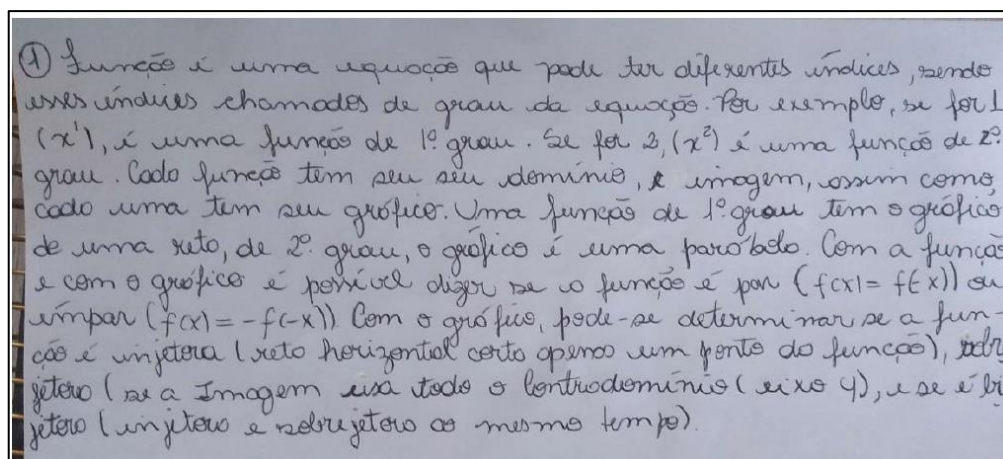 ① Função é uma equação que pode ter diferentes índices, sendo
esses índices chamados de grau da equação. Por exemplo, se for 1
(x¹), é uma função de 1º grau. Se for 2, (x²) é uma função de 2º
grau. Cada função tem seu seu domínio, e imagem, assim como
cada uma tem seu gráfico. Uma função de 1º grau tem o gráfico
de uma reta, de 2º grau, o gráfico é uma parábola. Com a função
e com o gráfico é possível dizer se a função é par (f(x) = f(-x)) ou
ímpar (f(x) = -f(-x)). Com o gráfico, pode-se determinar se a fun-
ção é injetora (reta horizontal corta apenas um ponto da função), sobre
jetora (se a Imagem usa todo o Contradomínio (eixo y), e se é bi
jetora (injetora e sobrejetora ao mesmo tempo).